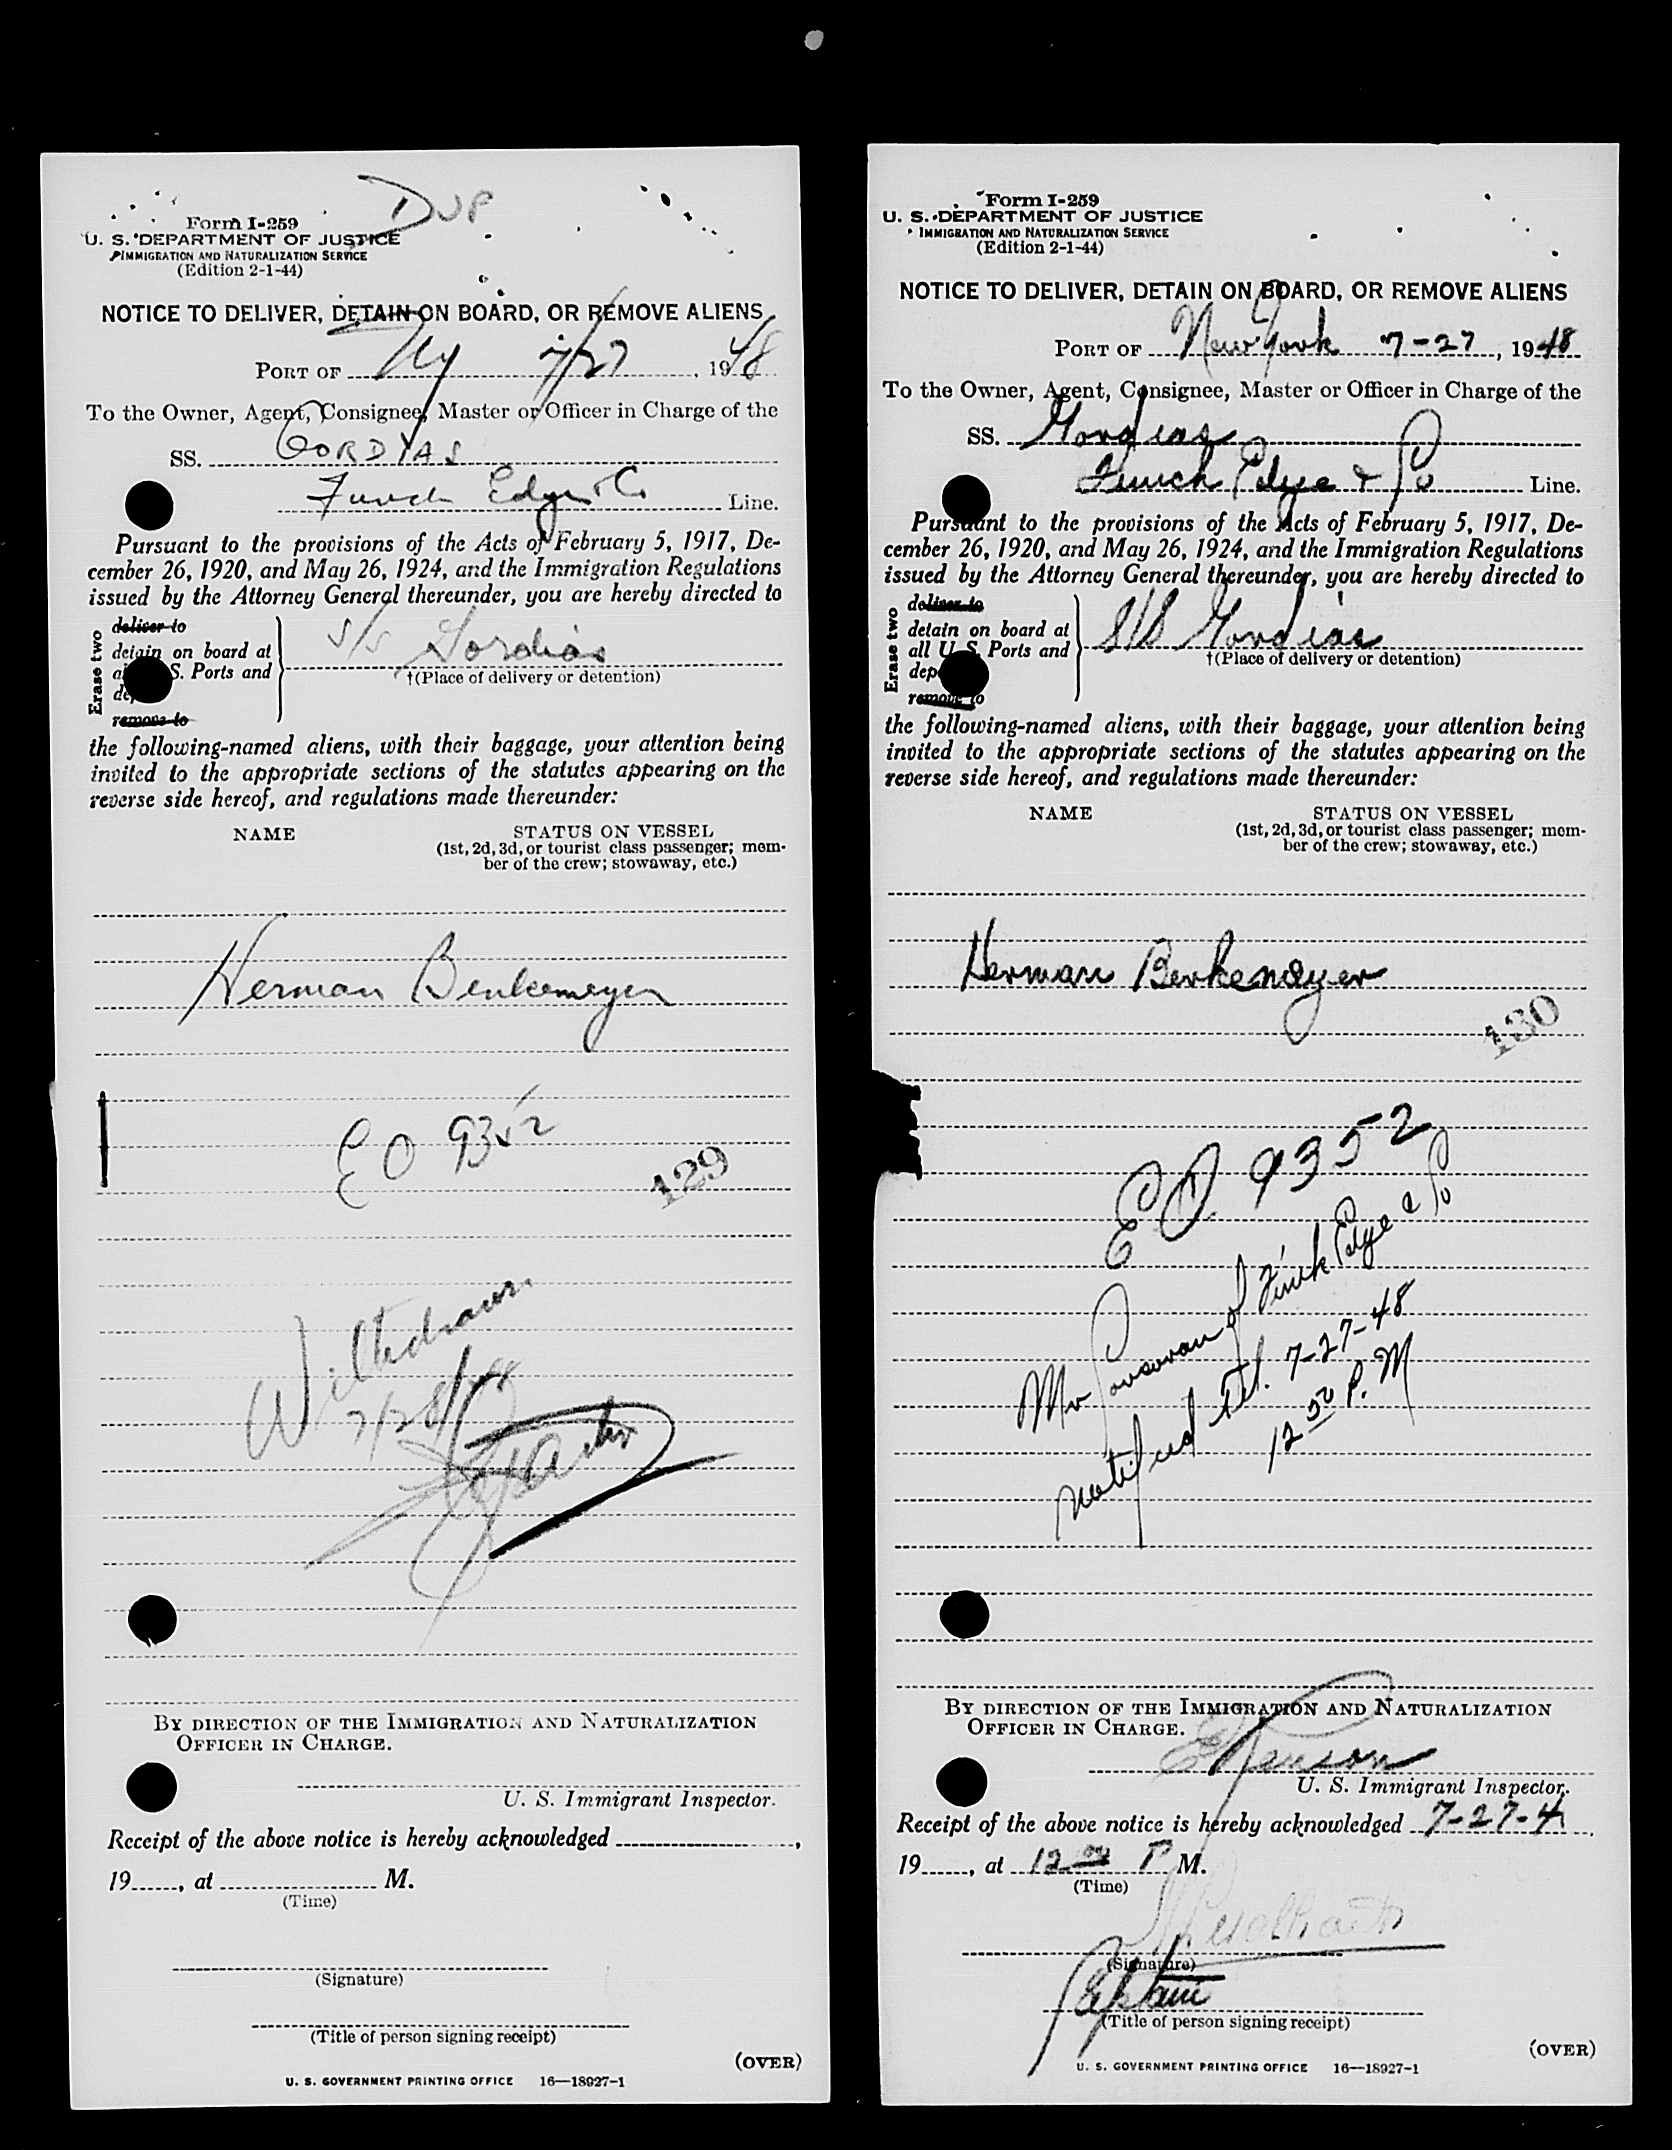 DUP
Form I-259
U. S. DEPARTMENT OF JUSTICE
IMMIGRATION AND NATURALIZATION SERVICE
(Edition 2-1-44)
NOTICE TO DELIVER, DETAIN ON BOARD, OR REMOVE ALIENS
PORT OF Ny 7/27, 1948
To the Owner, Agent, Consignee, Master or Officer in Charge of the
SS. GORDYAS
Funch Edye & Co Line.
Pursuant to the provisions of the Acts of February 5, 1917, De-
cember 26, 1920, and May 26, 1924, and the Immigration Regulations
issued by the Attorney General thereunder, you are hereby directed to
Erase two
deliver to
detain on board at
S. Ports and
remove to
S/S Gordias
†(Place of delivery or detention)
the following-named aliens, with their baggage, your attention being
invited to the appropriate sections of the statutes appearing on the
reverse side hereof, and regulations made thereunder:
NAME STATUS ON VESSEL
(1st, 2d, 3d, or tourist class passenger; mem-
ber of the crew; stowaway, etc.)
Herman Benkemeyer
EO 9352
129
Withdrawn
7/28/48
BY DIRECTION OF THE IMMIGRATION AND NATURALIZATION
OFFICER IN CHARGE.
U. S. Immigrant Inspector.
Receipt of the above notice is hereby acknowledged ,
19 , at M.
(Time)
(Signature)
(Title of person signing receipt)
(OVER)
U. S. GOVERNMENT PRINTING OFFICE 16—18927-1
Form I-259
U. S. DEPARTMENT OF JUSTICE
IMMIGRATION AND NATURALIZATION SERVICE
(Edition 2-1-44)
NOTICE TO DELIVER, DETAIN ON BOARD, OR REMOVE ALIENS
PORT OF New York 7-27, 1948
To the Owner, Agent, Consignee, Master or Officer in Charge of the
SS. Gordias
Funch Edye & Co Line.
Pursuant to the provisions of the Acts of February 5, 1917, De-
cember 26, 1920, and May 26, 1924, and the Immigration Regulations
issued by the Attorney General thereunder, you are hereby directed to
Erase two
deliver to
detain on board at
all U. S. Ports and
dep
remove to
S/S Gordias
†(Place of delivery or detention)
the following-named aliens, with their baggage, your attention being
invited to the appropriate sections of the statutes appearing on the
reverse side hereof, and regulations made thereunder:
NAME STATUS ON VESSEL
(1st, 2d, 3d, or tourist class passenger; mem-
ber of the crew; stowaway, etc.)
Herman Berkemeyer
130
EO 9352
Mr of Funch Edye & Co
notified Tel. 7-27-48
12 50 P.M
BY DIRECTION OF THE IMMIGRATION AND NATURALIZATION
OFFICER IN CHARGE.
U. S. Immigrant Inspector.
Receipt of the above notice is hereby acknowledged 7-27-4 ,
19 , at 12 P M.
(Time)
(Signature)
Captain
(Title of person signing receipt)
(OVER)
U. S. GOVERNMENT PRINTING OFFICE 16—18927-1